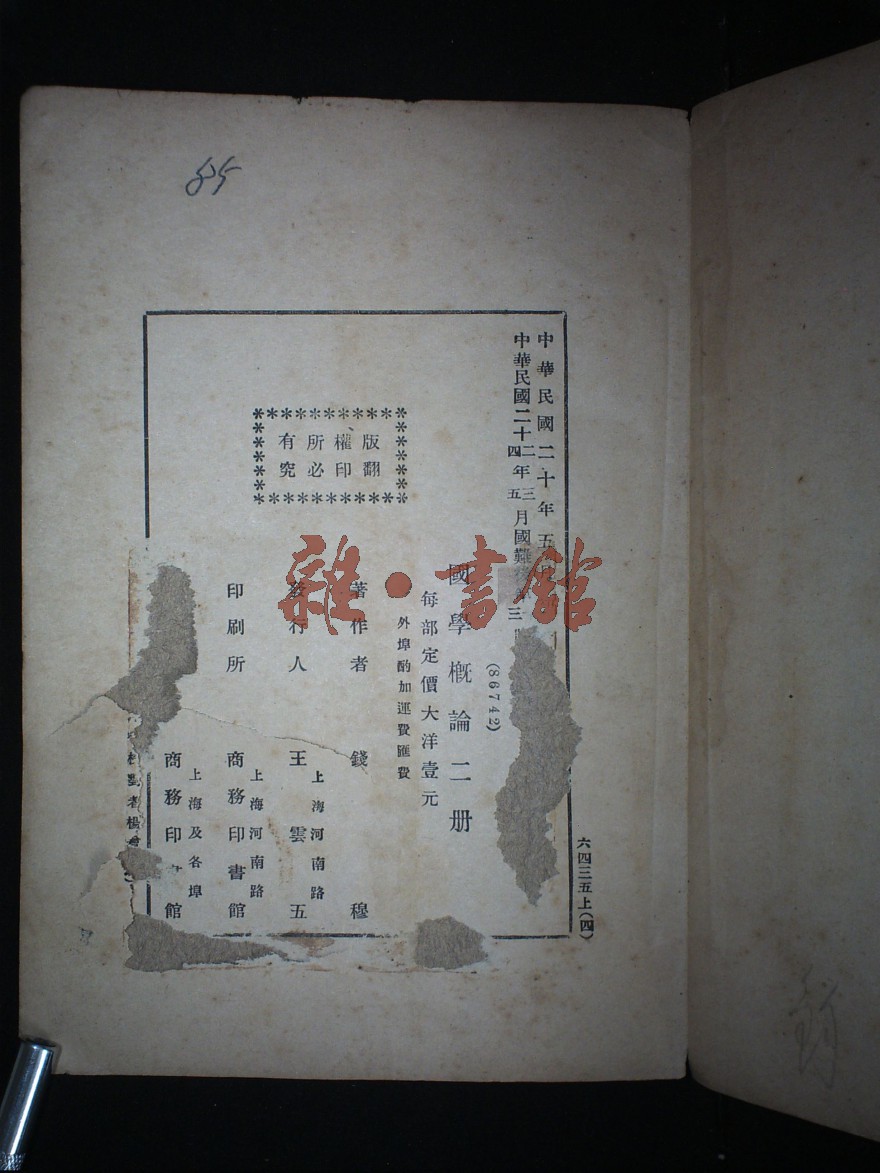 85
中華民國二十年五
中華民國二十二年三月國難
四 五 三
(86742)
國學概論二册
每部定價大洋壹元
外埠酌加運費匯費
版權所有
翻印必究
著作者 錢穆
發行人 王雲五
上海河南路
印刷所 商務印書館
上海河南路
商務印 館
上海及各埠
六四三五上(四)
雜·書館